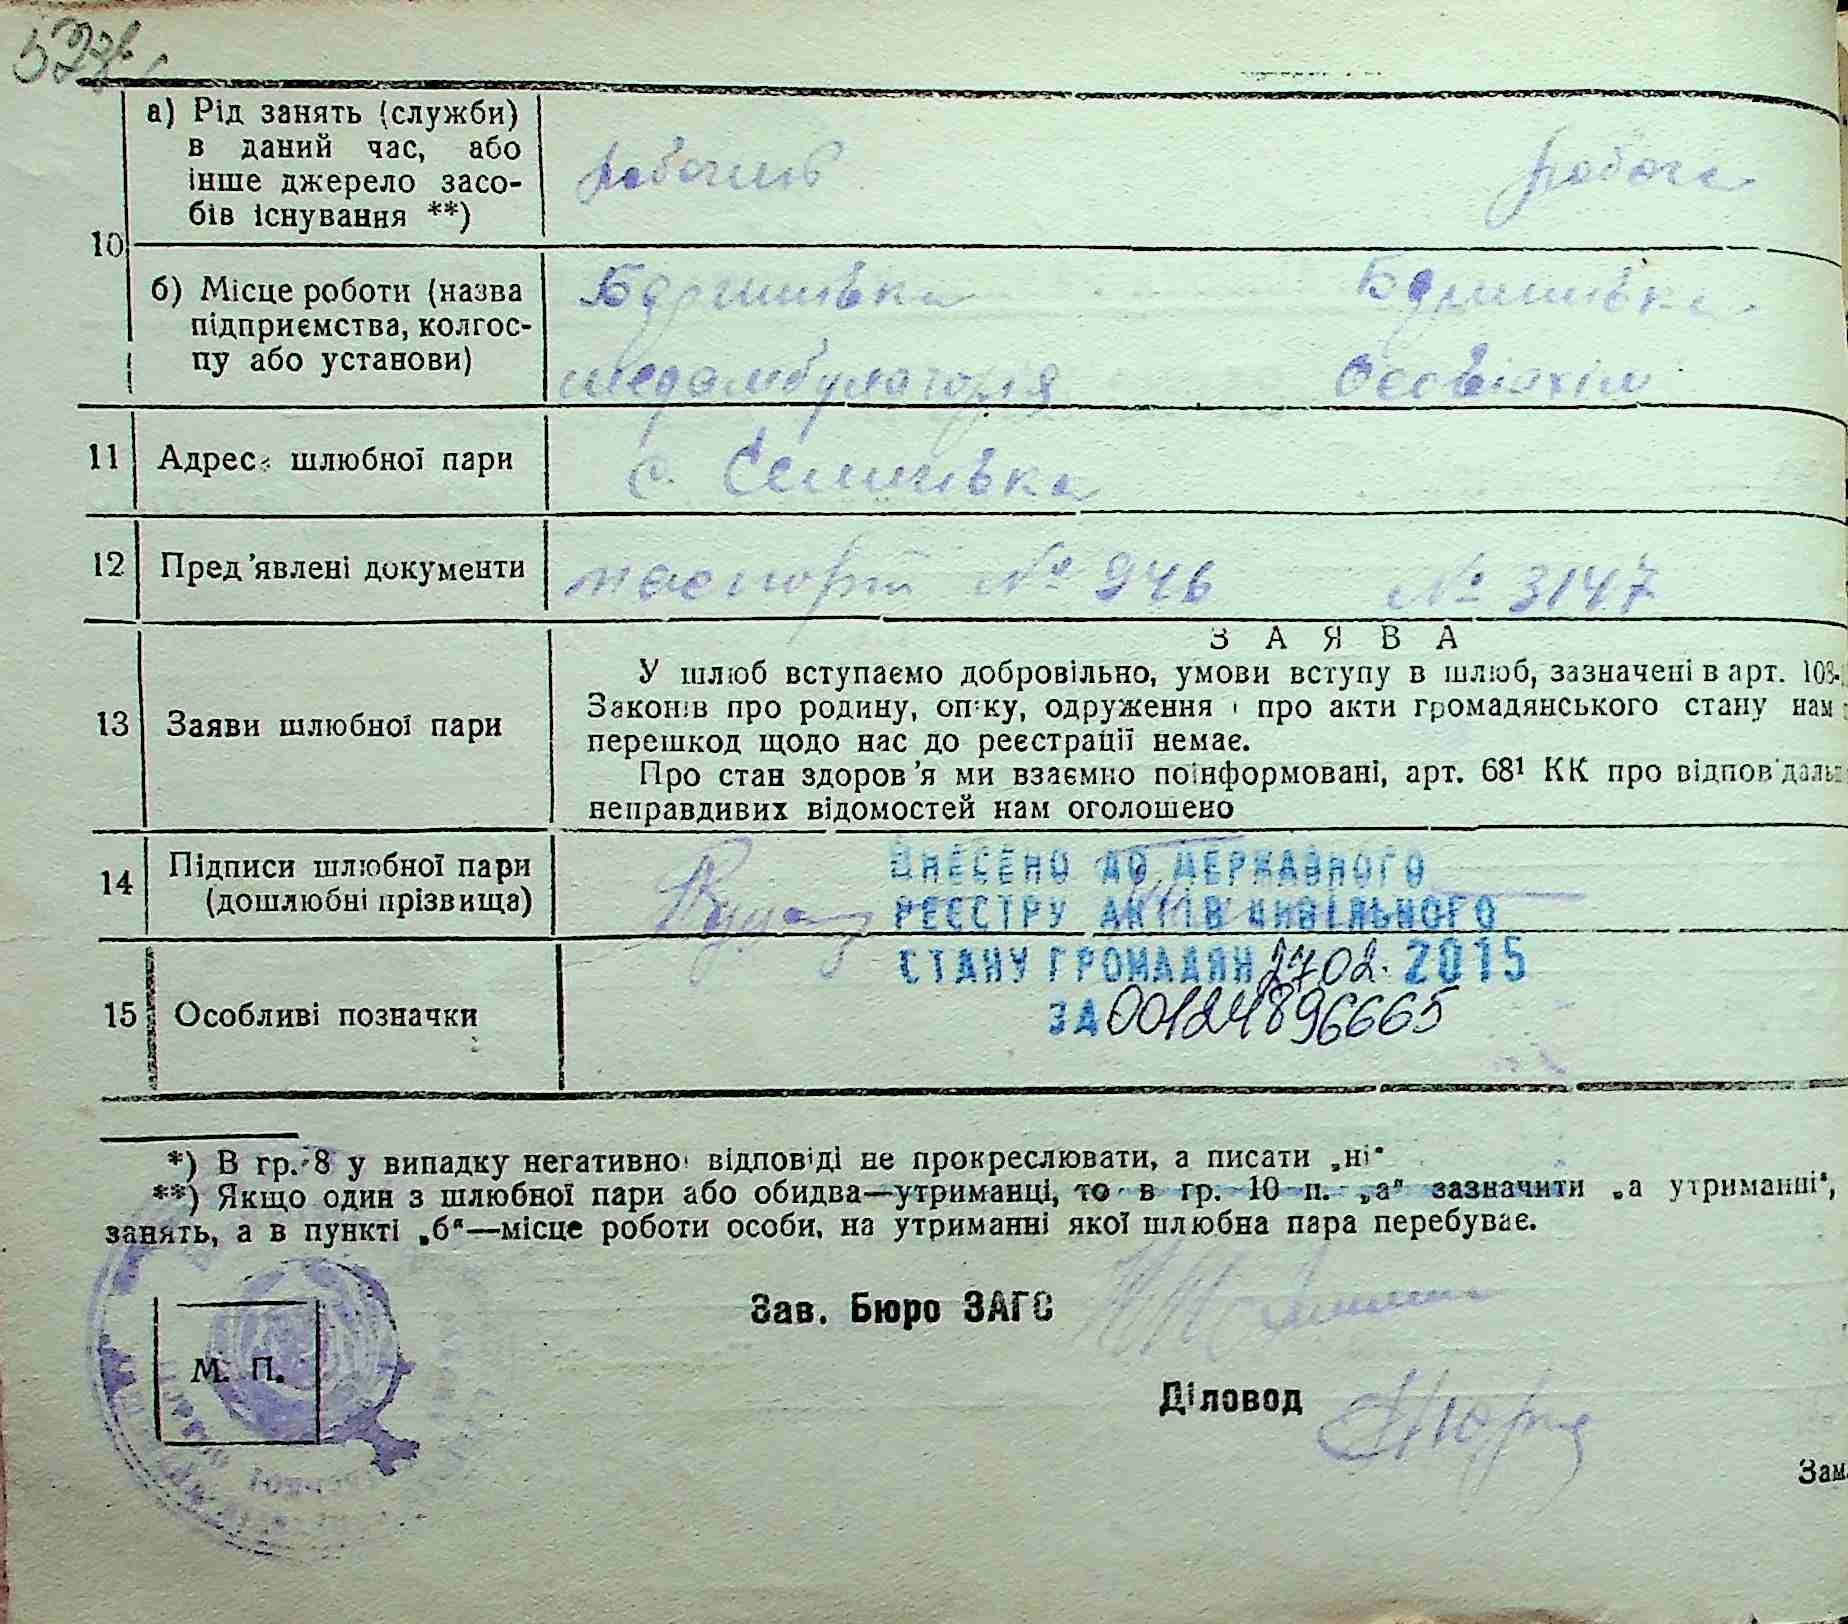 а) Рід занять (служби)
в даний час, або
інше джерело засо-
бів існування **)
робочий робоча
10
б) Місце роботи (назва
підприємства, колгос-
пу або установи)
Баришівка Баришівка
медамбулаторія Осовіахім
11 Адрес шлюбної пари с. Селищівка
12 Пред'явлені документи паспорт № 946 № 3147
ЗАЯВА
13 Заяви шлюбної пари
У шлюб вступаємо добровільно, умови вступу в шлюб, зазначені в арт. 108-
Законів про родину, опіку, одруження і про акти громадянського стану нам
перешкод щодо нас до реєстрації немає.
Про стан здоров'я ми взаємно поінформовані, арт. 68¹ КК про відповідаль
неправдивих відомостей нам оголошено
14 Підписи шлюбної пари
(дошлюбні прізвища)
ВНЕСЕНО ДО ДЕРЖАВНОГО
РЕЄСТРУ АКТІВ ЦИВІЛЬНОГО
СТАНУ ГРОМАДЯН 27 02. 2015
ЗА 00124896665
15 Особливі позначки
*) В гр. 8 у випадку негативної відповіді не прокреслювати, а писати „ні"
**) Якщо один з шлюбної пари або обидва—утриманці, то в гр. 10 п. „а" зазначити „а утриманні",
занять, а в пункті „б"—місце роботи особи, на утриманні якої шлюбна пара перебуває.
Зав. Бюро ЗАГС
М. П.
Діловод
Зам